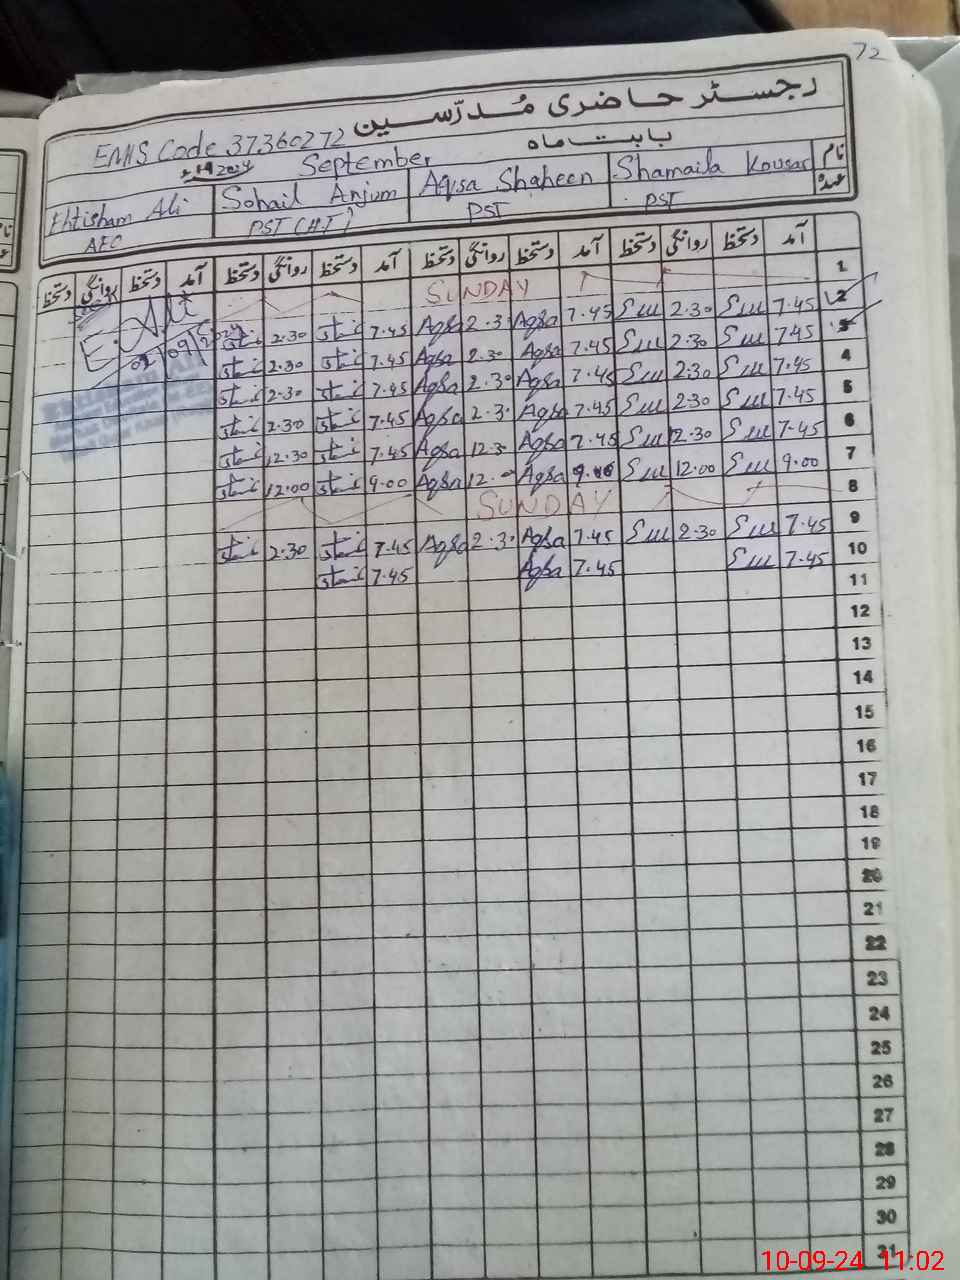 72
رجسٹر حاضری مُدرّسین
EMIS Code 37360272
بابت ماہ
September
نام
عہدہ
Shamaila Kousar
PST
Aqsa Shaheen
PST
Sohail Anjum
PST (HT)
Ehtisham Ali
AEO
آمد دستخظ روانگی دستخظ آمد دستخظ روانگی دستخظ آمد دستخظ روانگی دستخظ آمد دستخظ روانگی دستخظ
1 SUNDAY
2 7.45 2.30 7.45 Aqsa 2.30 Aqsa 7.45 2.30
3 7.45 2.30 7.45 Aqsa 2.30 Aqsa 7.45 2.30
4 7.45 2.30 7.45 Aqsa 2.30 Aqsa 7.45 2.30
5 7.45 2.30 7.45 Aqsa 2.30 Aqsa 7.45 2.30
6 7.45 12.30 7.45 Aqsa 12.30 Aqsa 7.45 12.30
7 9.00 12.00 9.00 Aqsa 12.00 Aqsa 9.00 12.00
8 SUNDAY
9 7.45 2.30 7.45 Aqsa 2.30 Aqsa 7.45 2.30
10 7.45 7.45 Aqsa 7.45
11
12
13
14
15
16
17
18
19
20
21
22
23
24
25
26
27
28
29
30
31
E. Ali
02/09/2024
10-09-24 11:02